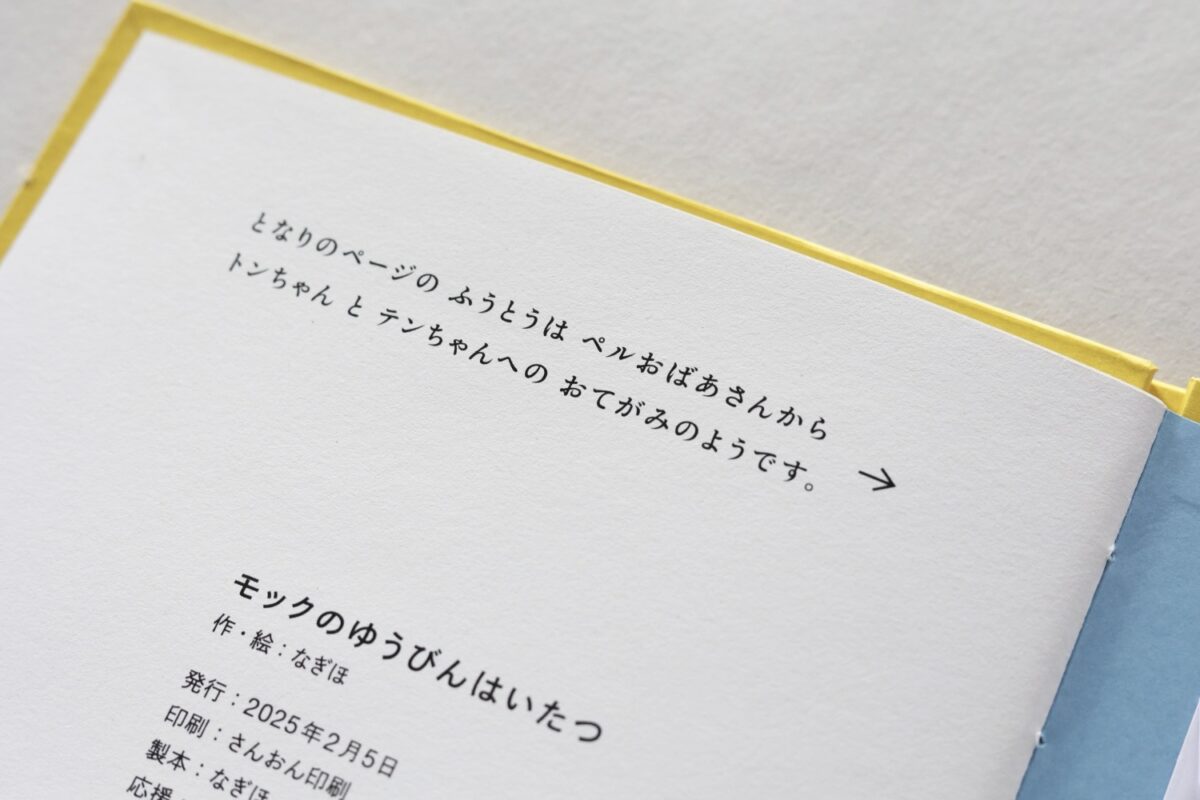 となりのページの ふうとうは ペルおばあさんから
トンちゃん と テンちゃんへの おてがみのようです。
→
モックのゆうびんはいたつ
作・絵：なぎほ
発行：2025年2月5日
印刷：さんおん印刷
製本：なぎほ
応援：